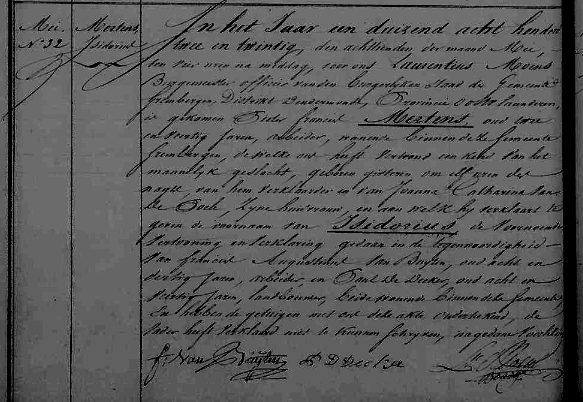 Mei. Mertens,
N° 32 Isidorius
In het Jaar een duizend acht honderd
twee en twintig, den achttienden, der maand Mei,
ten vier uren na middag, voor ons Laurentius Moens
Borgemeester officier van den Borgerlyken Stand der Gemeente
Grembergen, District Dendermonde, Provincie Oost Vlaenderen,
is gekomen Peeter francies Mertens, oud twee
en veertig Jaren, arbeider, wonende binnen deze Gemeente
Grembergen, de welke ons heeft vertoond een kind van het
mannelyk geslacht, geboren gisteren, om elf uren des
nagts, van hem verklaarder en van Joanna Catharina Van
De huisvrouw, en aan welk hy verklaart te
geven de voornaam van Isidorius, de voornoemde
vertooning en verklaring gedaan in de tegenwoordigheid
van francies Augustinus Van Buyten, oud acht en
dertig Jaren, arbeider, en Paul De Decker, oud acht en
veertig Jaren, landbouwer, beide wonende binnen deze Gemeente
En hebben de getuigen met ons deze akte onderteekend, de
Vader heeft verklaard niet te kunnen schryven, na gedane Voorlezing
f: Van Buyten P D Decker